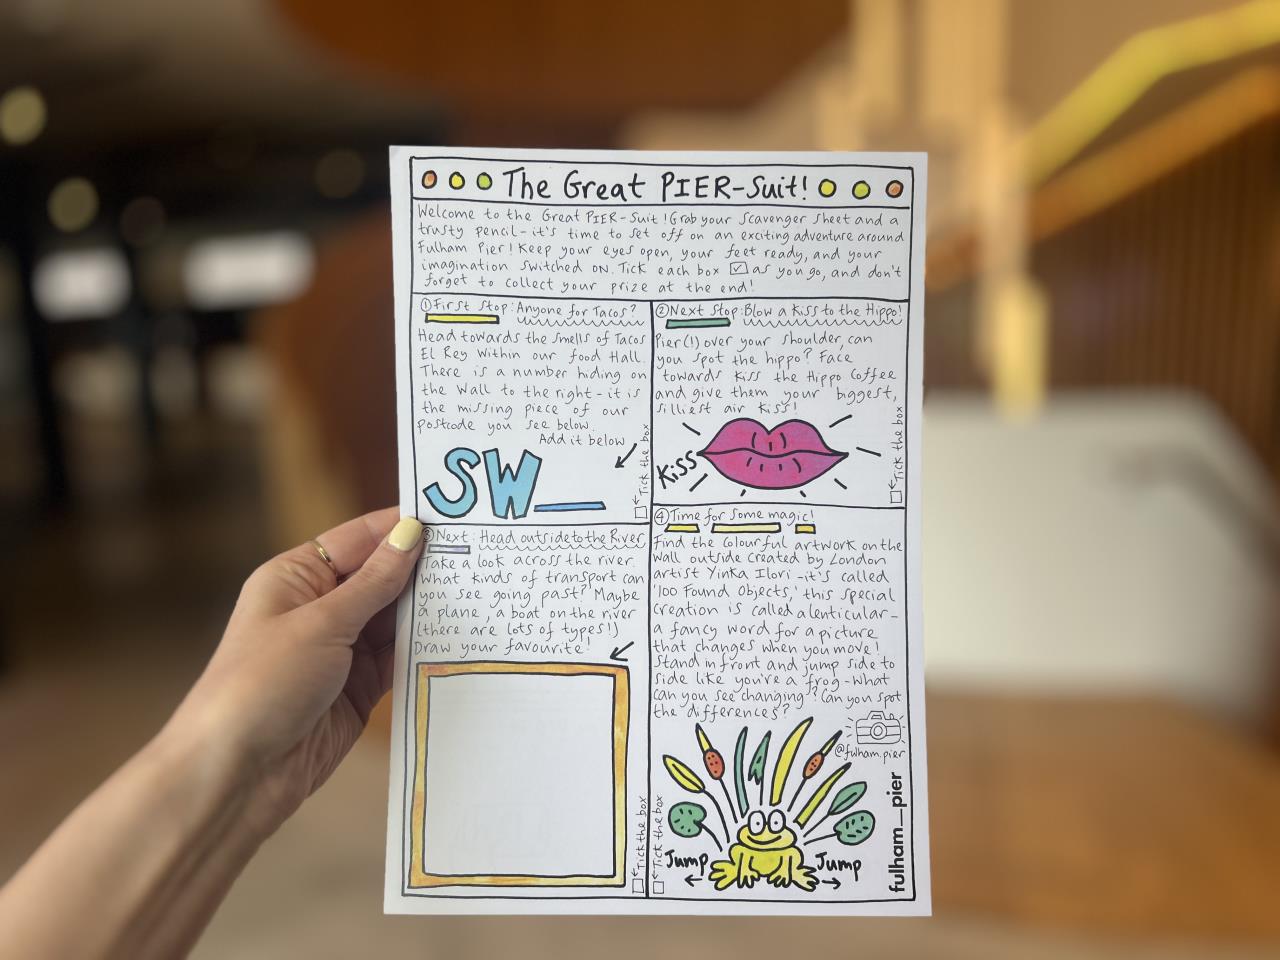 The Great PIER-Suit!
Welcome to the Great PIER-Suit! Grab your Scavenger Sheet and a
trusty pencil- it's time to set off on an exciting adventure around
Fulham Pier! Keep your eyes open, your feet ready, and your
imagination switched on. Tick each box ☑ as you go, and don't
forget to collect your prize at the end!
① First Stop: Anyone for Tacos?
Head towards the smells of Tacos
El Rey within our food Hall.
There is a number hiding on
the wall to the right- it is
the missing piece of our
postcode you see below.
Add it below
SW__
←Tick the box
② Next Stop: Blow a Kiss to the Hippo!
Pier(!) over your shoulder, can
you spot the hippo? Face
towards Kiss the Hippo Coffee
and give them your biggest,
silliest air kiss!
Kiss
←Tick the box
③ Next: Head outside to the River
Take a look across the river.
What kinds of transport can
you see going past? Maybe
a plane, a boat on the river
(there are lots of types!)
Draw your favourite!
←Tick the box
④ Time for some magic!
Find the colourful artwork on the
wall outside created by London
artist Yinka Ilori -it's called
'100 Found Objects,' this special
creation is called a lenticular-
a fancy word for a picture
that changes when you move!
Stand in front and jump side to
side like you're a frog-What
can you see changing? Can you spot
the differences?
@fulham.pier
←Tick the box
Jump
Jump
fulham__pier